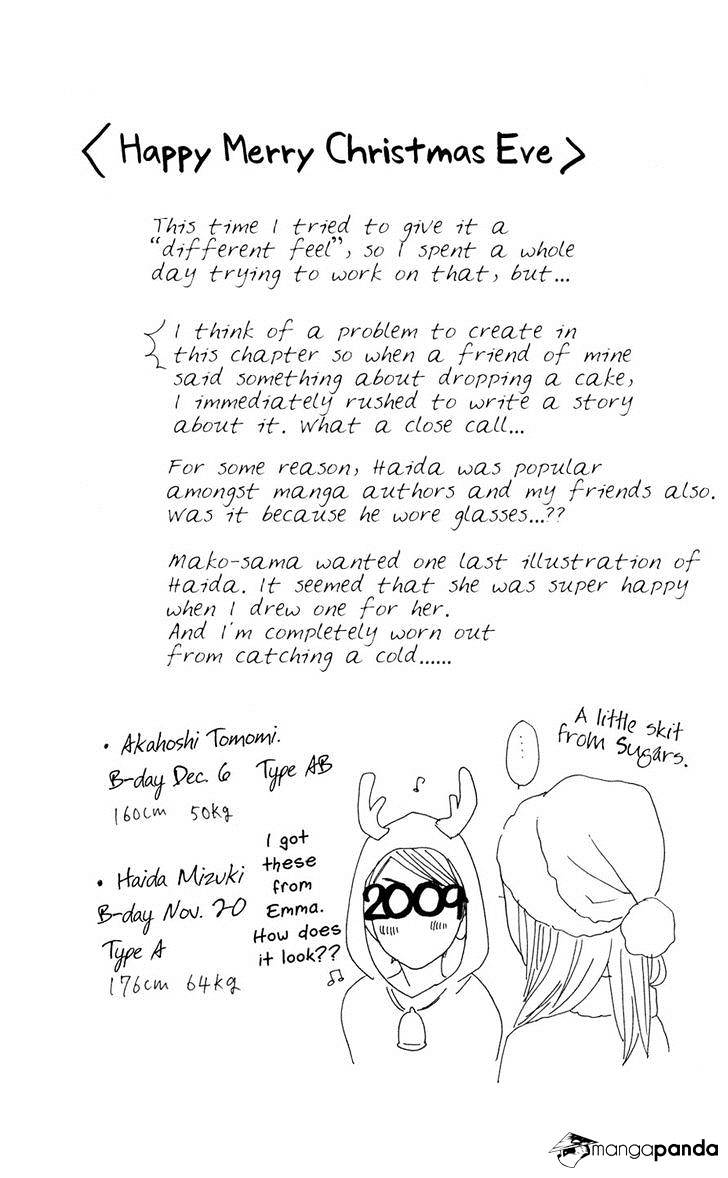 <Happy Merry Christmas Eve>
This time I tried to give it a
"different feel", so I spent a whole
day trying to work on that, but...
I think of a problem to create in
this chapter so when a friend of mine
said something about dropping a cake,
I immediately rushed to write a story
about it. What a close call...
For some reason, Haida was popular
amongst manga authors and my friends also.
Was it because he wore glasses...??
Mako-sama wanted one last illustration of
Haida. It seemed that she was super happy
when I drew one for her.
And I'm completely worn out
from catching a cold......
• Akahoshi Tomomi.
B-day Dec. 6 Type AB
160cm 50kg
• Haida Mizuki
B-day Nov. 20
Type A
176cm 64kg
I got
these
from
Emma.
How does
it look??
2009
......
A little skit
from Sugars.
mangapanda